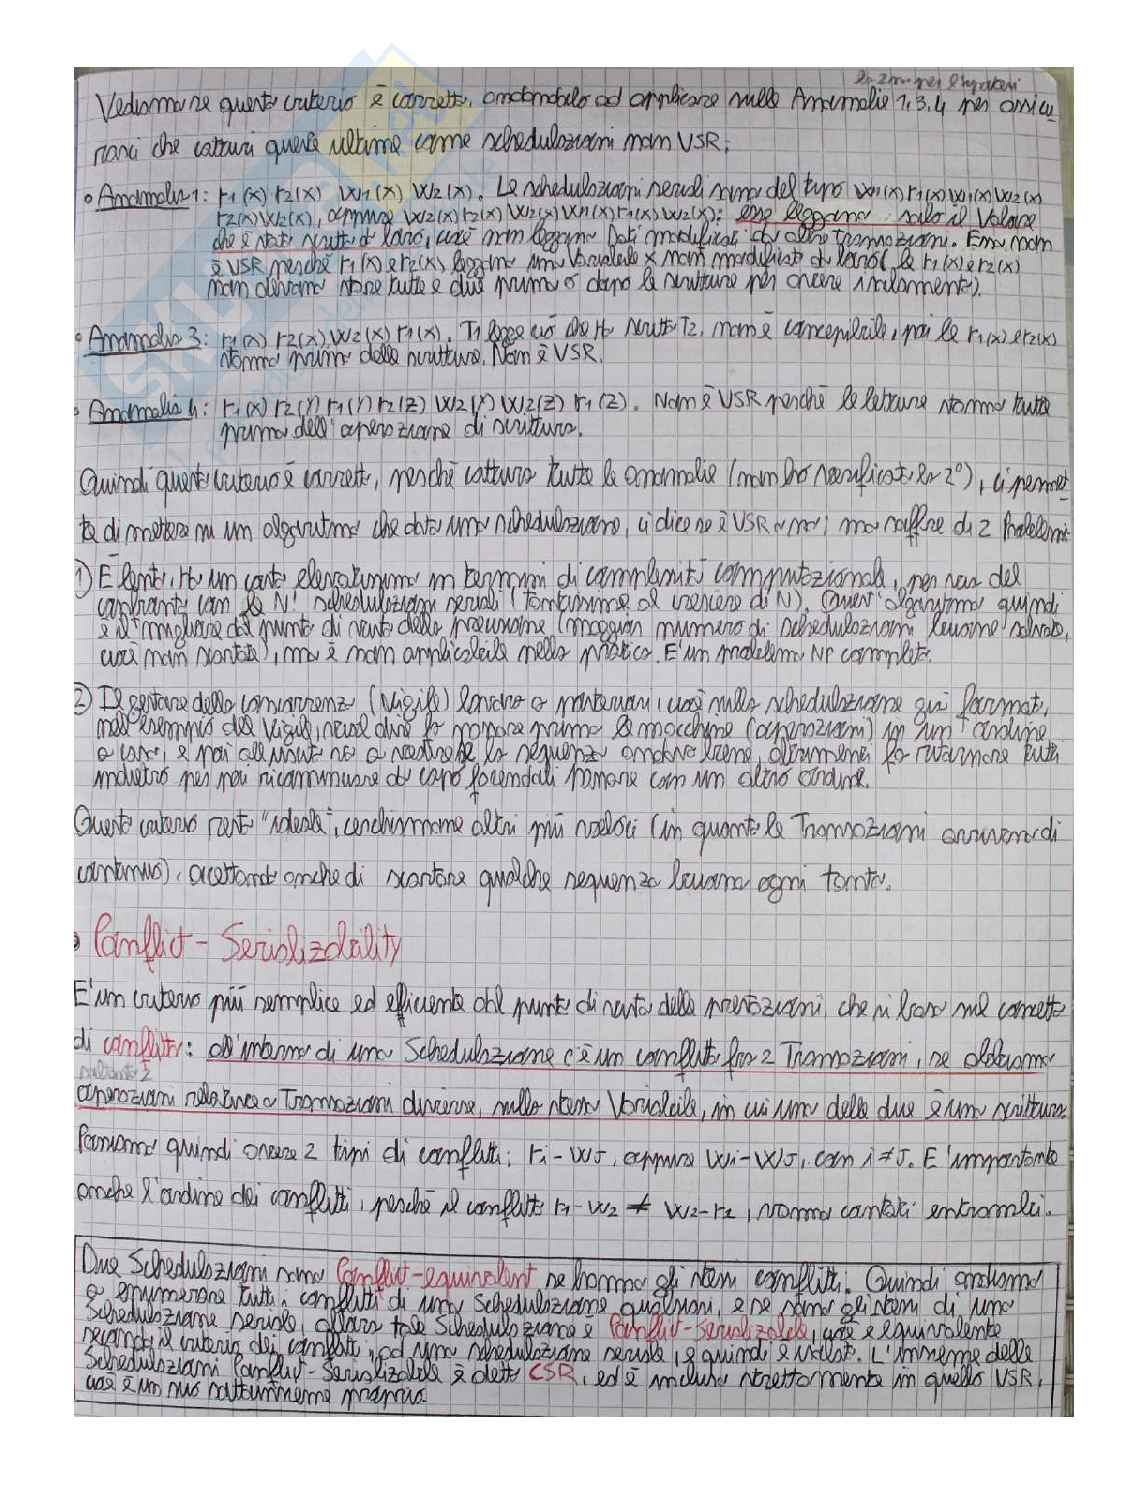 Vediamo se questo criterio è corretto, andandolo ad applicare sulle Anomalie 1, 3, 4 per assicu
rarci che catturi queste ultime come schedulazioni non VSR:
• Anomalia 1: r1(x) r2(x) w1(x) w2(x). Le schedulazioni seriali sono del tipo r1(x) w1(x) w2(x)
r2(x) w2(x), oppure w2(x) r2(x) w2(x) w1(x) r1(x) w2(x): esse leggono solo il Valore
che è stato scritto da loro, cioè non leggono Dati modificati da altre transazioni. Ema non
è VSR perché r1(x) e r2(x) leggono una Variabile x non modificata da loro (le r1(x) e r2(x)
non devono stare tutte e due prima o dopo le scritture per essere isolamente).
• Anomalia 3: r1(x) r2(x) w2(x) r1(x). T1 legge ciò che ha scritto T2, non è concepibile, poi le r1(x) e r2(x)
stanno prima della scrittura. Non è VSR.
• Anomalia 4: r1(x) r2(y) r1(y) r2(z) w2(y) w2(z) r1(z). Non è VSR perché le letture stanno tutte
prima dell'operazione di scrittura.
Quindi questo criterio è corretto, perché cattura tutte le anomalie (non ho verificato la 2°), ci permet
te di mettere su un algoritmo che data una schedulazione, ci dice se è VSR o no; ma soffre di 2 Problemi:
1) È lento, ha un costo elevatissimo in termini di complessità computazionale, per via del
confronto con le N! schedulazioni seriali (tantissime al crescere di N). Quest'algoritmo quindi
è il migliore dal punto di vista della precisione (maggior numero di schedulazioni buone salvate,
cioè non scartate), ma è non applicabile nella pratica. E' un problema NP completo.
2) Il gestore della concorrenza (Vigile) lavora a posteriori, cioè sulla schedulazione già formata,
nell'esempio del Vigile, vuol dire fa passare prima le macchine (operazioni) in un ordine
a caso, e poi all'uscita va a vedere se la sequenza andava bene, altrimenti fa ritornare tutti
indietro per poi ricominciare da capo facendoli passare con un altro ordine.
Questo criterio resta "ideale", cerchiamone altri più veloci (in quanto le Transazioni arrivano di
continuo), accettando anche di scartare qualche sequenza buona ogni tanto.
• Conflict - Serializability
E' un criterio più semplice ed efficiente dal punto di vista delle prestazioni che si basa sul concetto
di conflitto: all'interno di una Schedulazione c'è un conflitto fra 2 Transazioni, se abbiamo
soltanto 2
operazioni relative a Transazioni diverse, sulla stessa Variabile, in cui una delle due è una scrittura
Possiamo quindi avere 2 tipi di conflitti: ri - wJ, oppure wi - wJ, con i ≠ J. E' importante
anche l'ordine dei conflitti, perché il conflitto r1 - w2 ≠ w2 - r1, vanno contati entrambi.
Due Schedulazioni sono Conflict-equivalent se hanno gli stessi conflitti. Quindi andiamo
a enumerare tutti i conflitti di una Schedulazione qualsiasi, e se sono gli stessi di una
Schedulazione seriale, allora tale Schedulazione è Conflict-Serializable, cioè è equivalente
secondo il criterio dei conflitti, ad una schedulazione seriale, e quindi è isolata. L'insieme delle
Schedulazioni Conflict-Serializable è detto CSR, ed è incluso strettamente in quello VSR,
cioè è un suo sottoinsieme proprio.